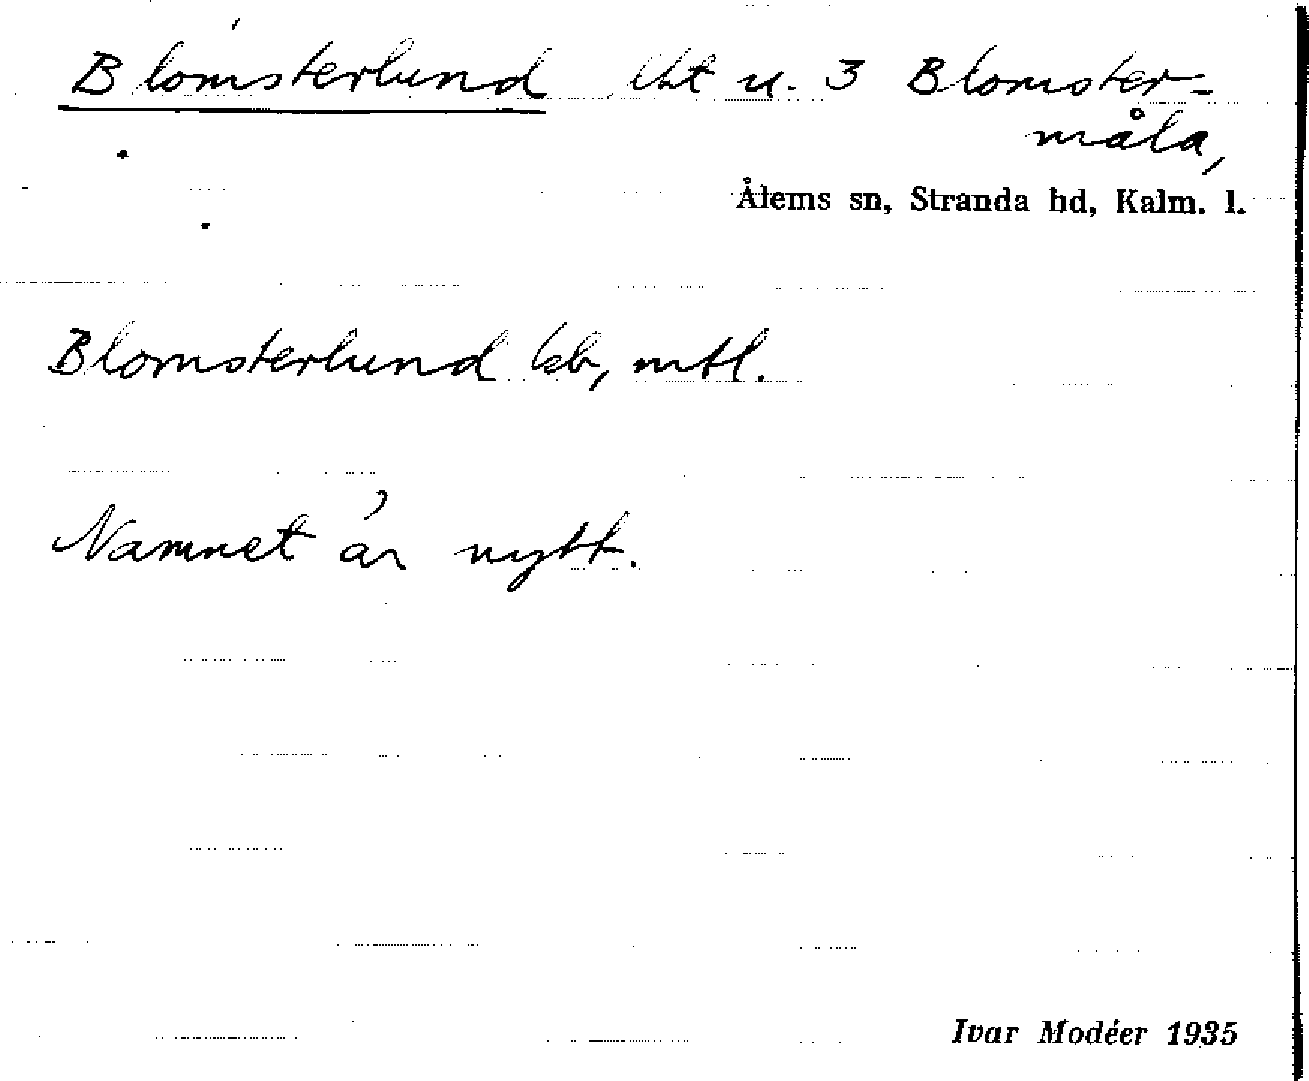 Blomsterlund lht u. 3 Blomster-
måla,
Ålems sn, Stranda hd, Kalm. l.
Blomsterlund kb, mtl.
Namnet är nytt.
Ivar Modéer 1935